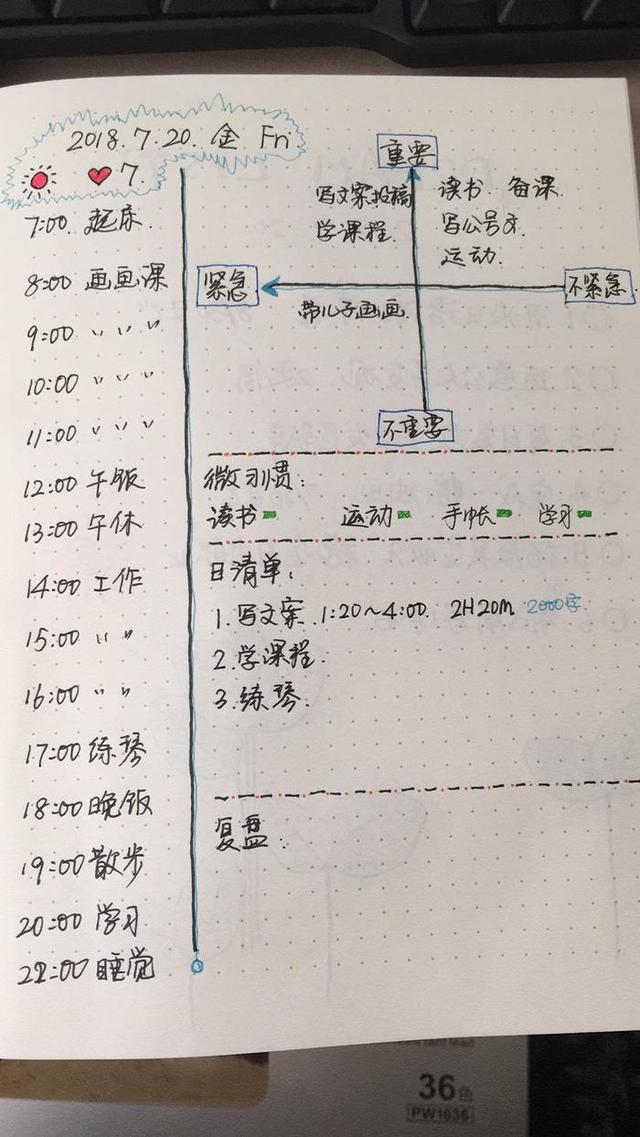 2018.7.20. 金 Fri
7.
7:00 起床
8:00 画画课
9:00 〃 〃 〃
10:00 〃 〃 〃
11:00 〃 〃 〃
12:00 午饭
13:00 午休
14:00 工作
15:00 〃 〃
16:00 〃 〃
17:00 练琴
18:00 晚饭
19:00 散步
20:00 学习
22:00 睡觉
重要
写文案投稿
学课程
读书 备课
写公号文
运动
紧急
不紧急
带儿子画画
不重要
微习惯:
读书 运动 手帐 学习
日清单:
1. 写文案 1:20~4:00. 2H20M 2000字
2. 学课程.
3. 练琴.
复盘:
36色
PW1636